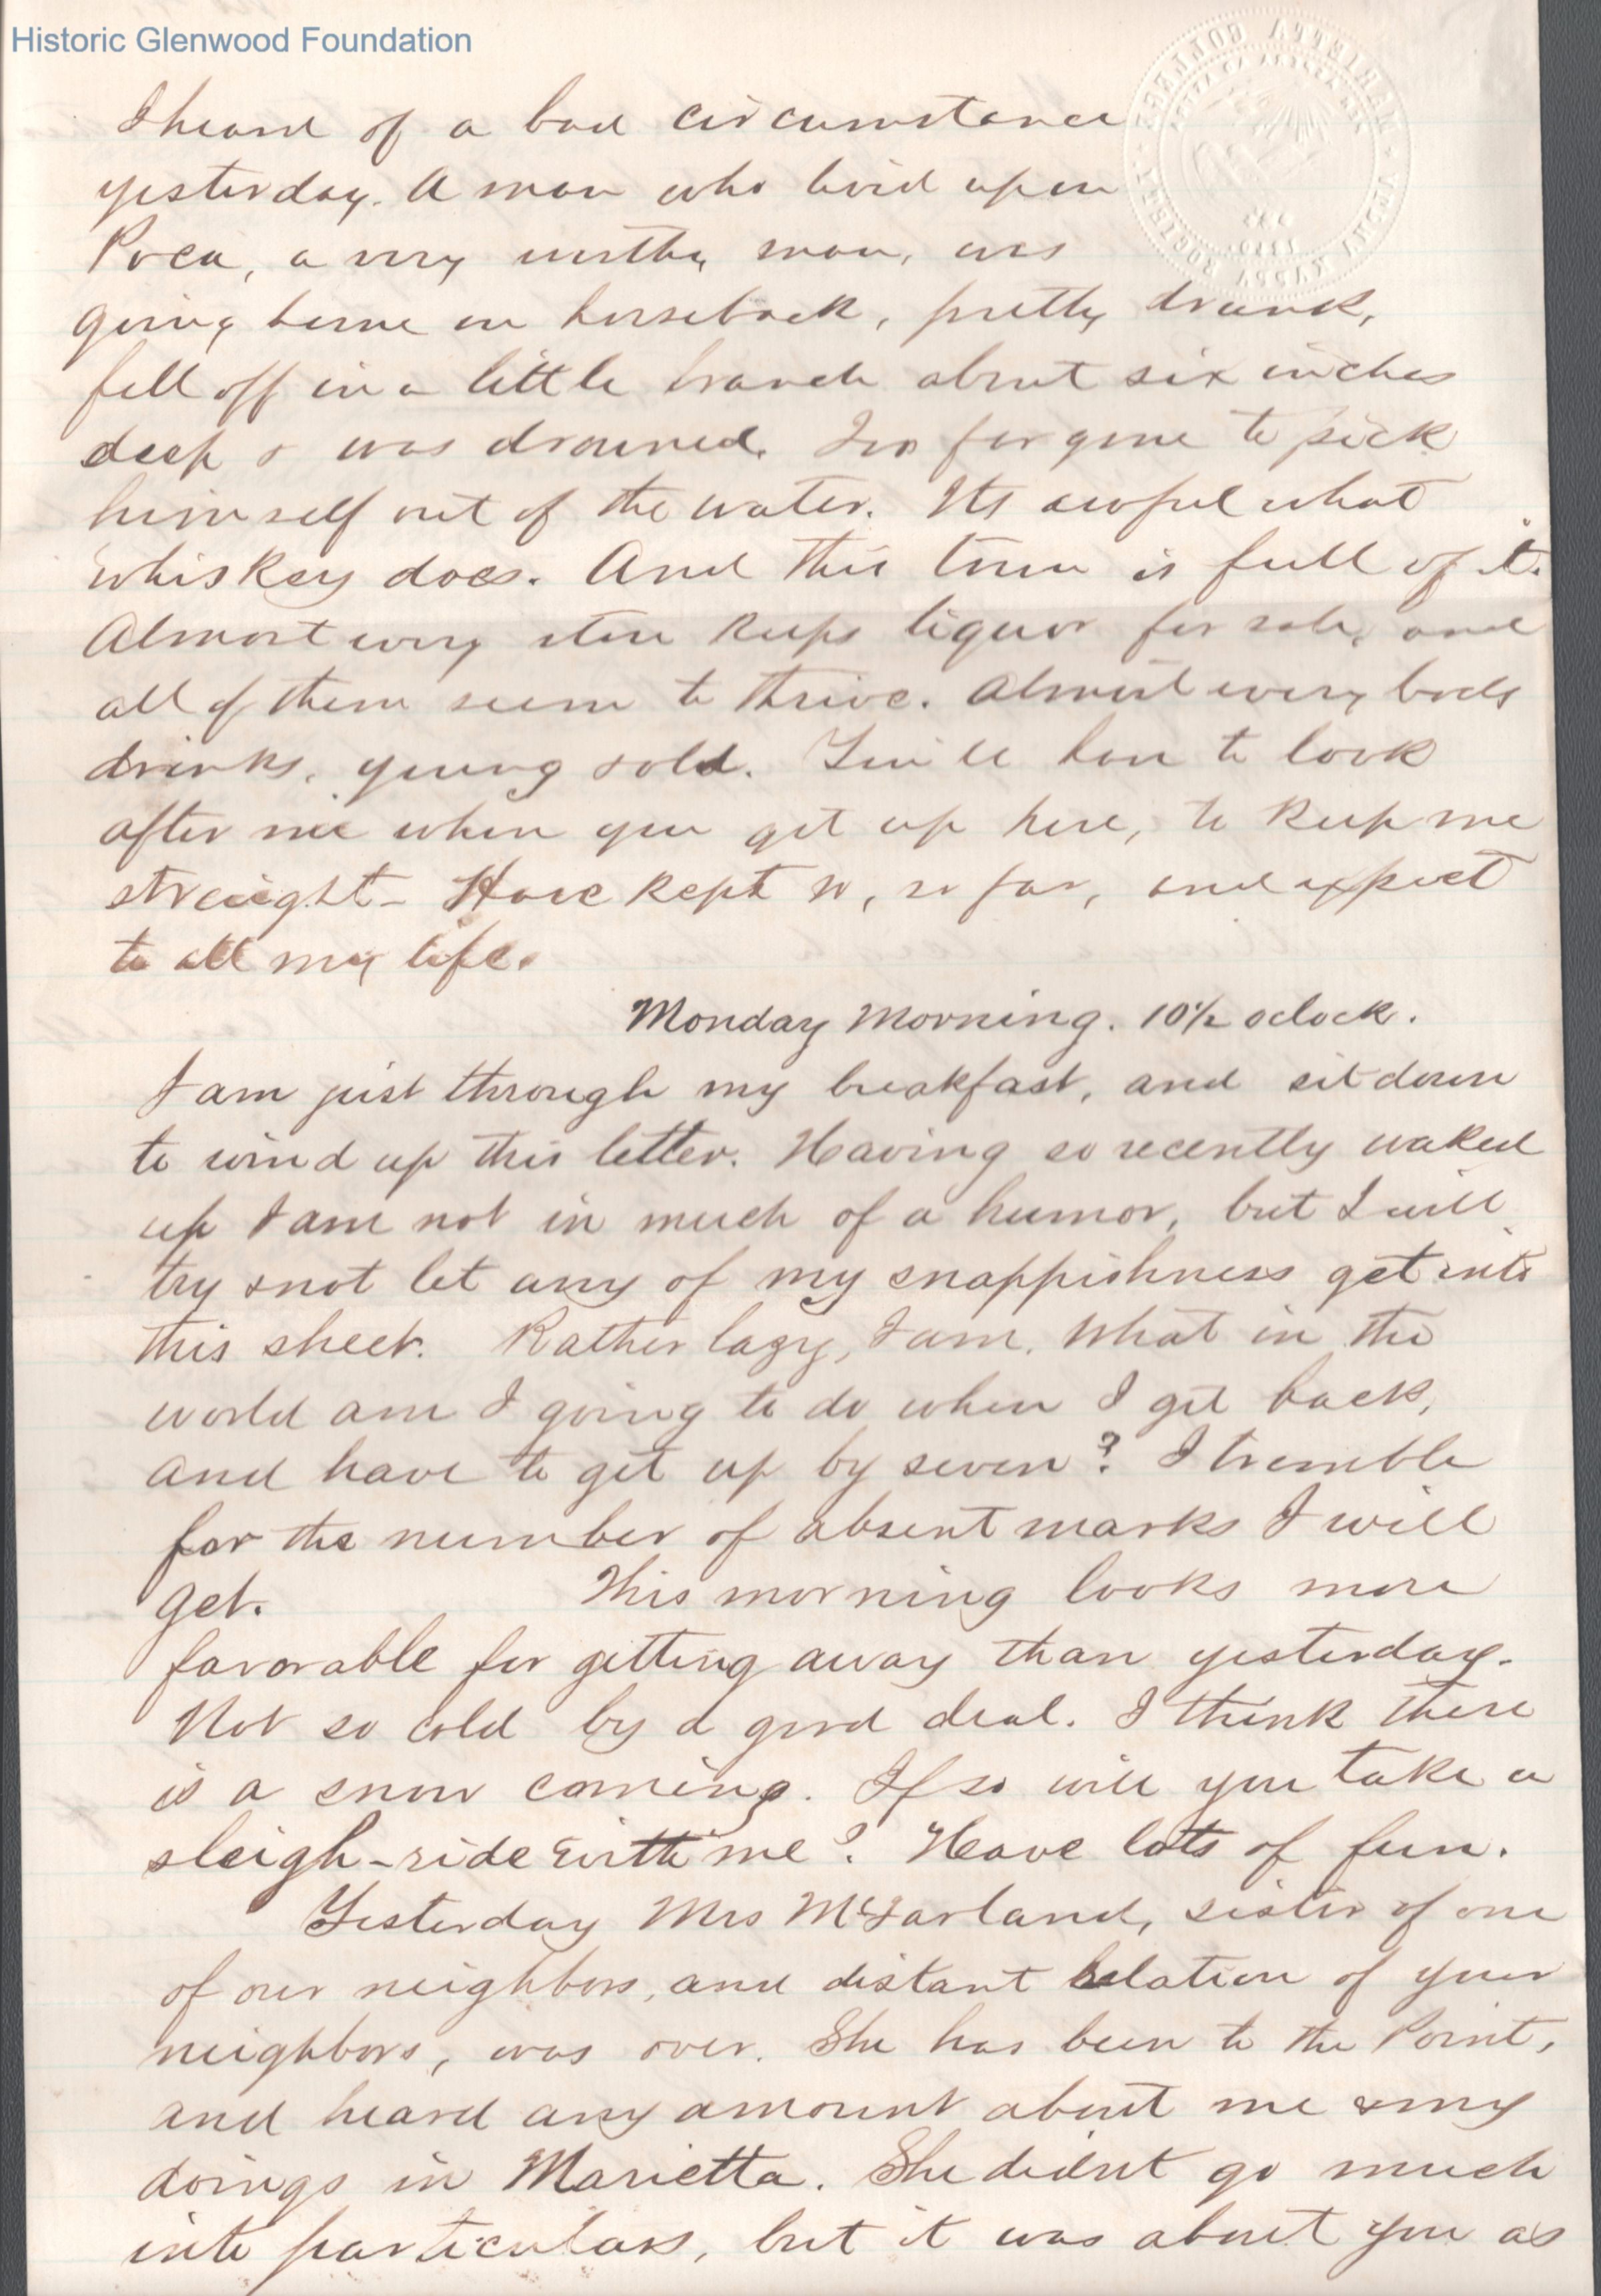 Historic Glenwood Foundation
I heard of a bad circumstance
yesterday. A man who lived upon
Poca, a very worthy man, was
going home on horseback, pretty drunk,
fell off in a little branch about six inches
deep & was drowned. Too far gone to pick
himself out of the water. Its awful what
whiskey does. And this town is full of it.
Almost every store keeps liquor for sale, and
all of them seem to thrive. Almost every body
drinks, young & old. You'll have to look
after me when you get up here, to keep me
straight - Have kept so, so far, and expect
to all my life.
Monday Morning. 10½ oclock.
I am just through my breakfast, and sit down
to wind up this letter. Having so recently waked
up I am not in much of a humor, but I will
try & not let any of my snappishness get into
this sheet. Rather lazy, I am. What in the
world am I going to do when I get back,
and have to get up by seven? I tremble
for the number of absent marks I will
get. This morning looks more
favorable for getting away than yesterday.
Not so cold by a good deal. I think there
is a snow coming. If so will you take a
sleigh-ride with me? Have lots of fun.
Yesterday Mrs McFarland, sister of one
of our neighbors, and distant relation of your
neighbors, was over. She has been to the Point,
and heard any amount about me & my
doings in Marietta. She didnt go much
into particulars, but it was about you as